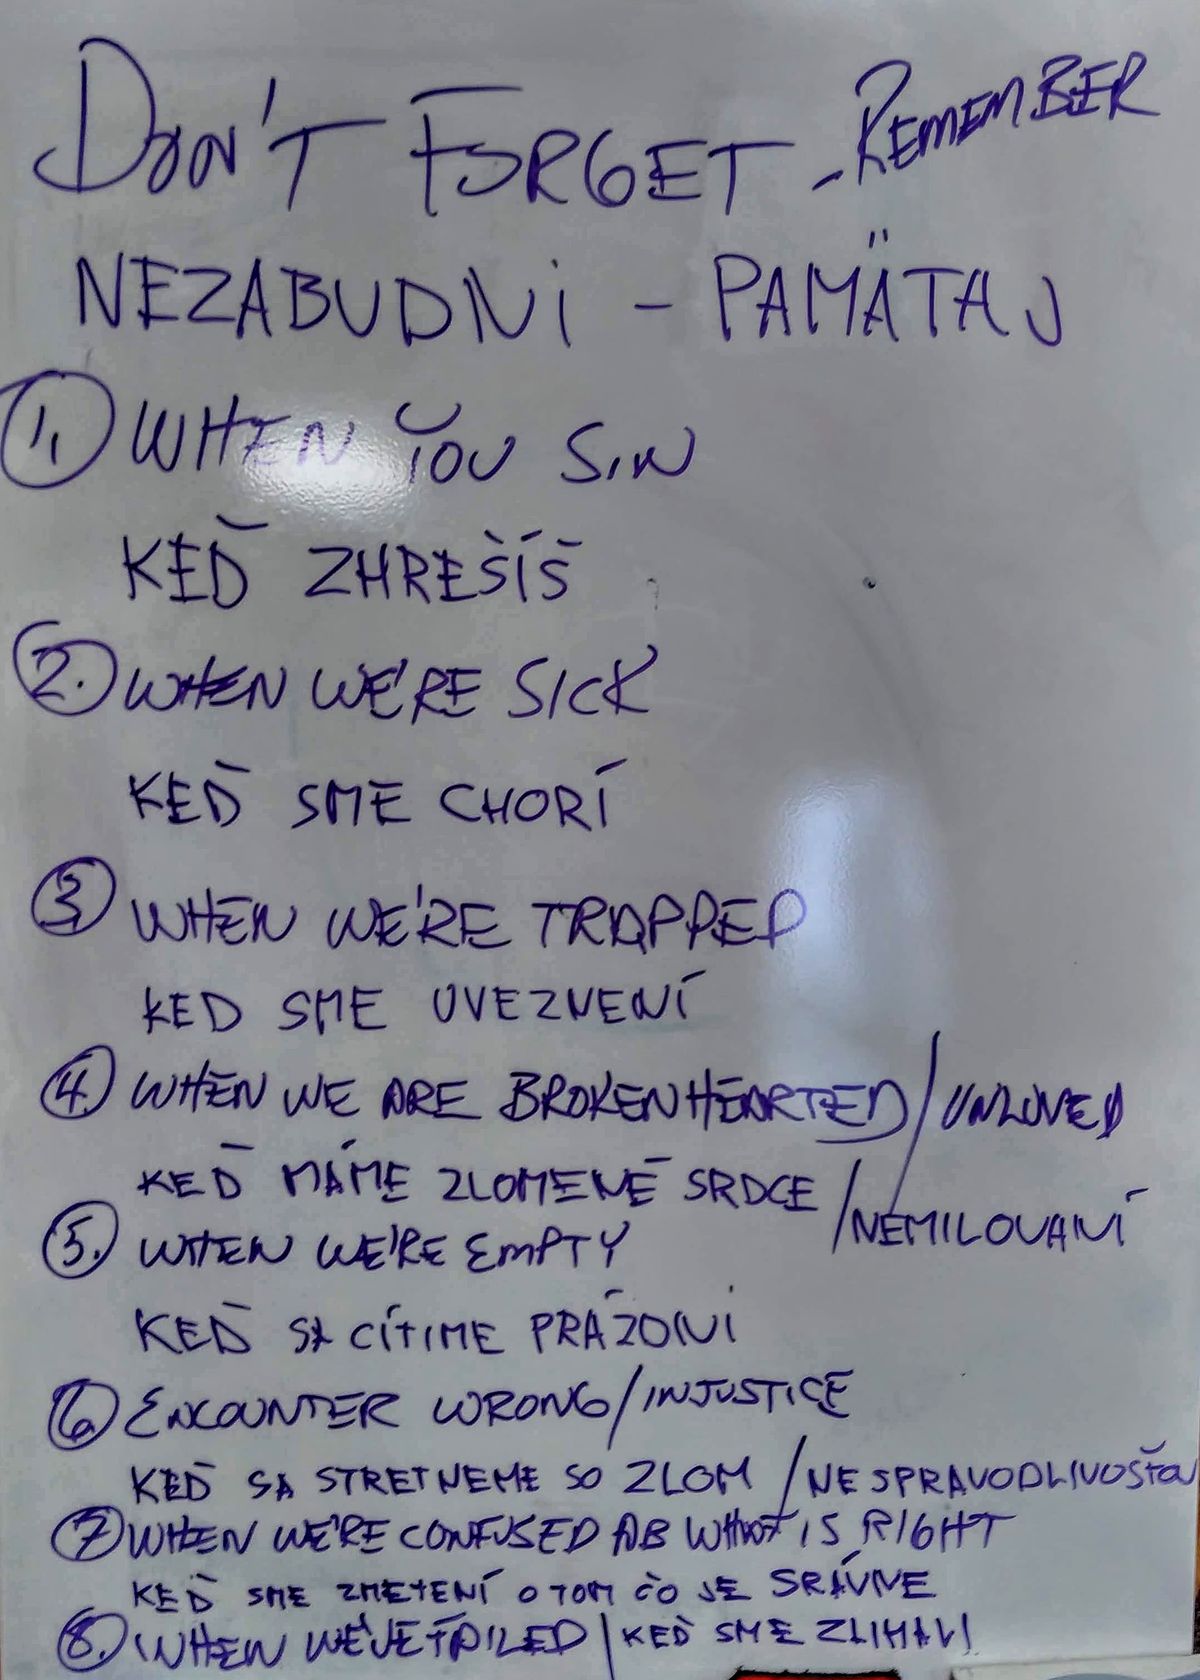 DON'T FORGET - REMEMBER
NEZABUDNi - PAMÄTAJ
1. WHEN YOU SIN
KEĎ ZHREŠÍŠ
2. WHEN WE'RE SICK
KEĎ SME CHORÍ
3. WHEN WE'RE TRAPPED
KED SME UVEZNENÍ
4. WHEN WE ARE BROKENHEARTED/UNLOVED
KEĎ MÁME ZLOMENÉ SRDCE /NEMILOVANÍ
5. WHEN WE'RE EMPTY
KEĎ SA CÍTIME PRÁZDNI
6. ENCOUNTER WRONG/INJUSTICE
KEĎ SA STRETNEME SO ZLOM /NESPRAVODLIVOSŤOU
7 WHEN WE'RE CONFUSED AB WHAT IS RIGHT
KEĎ SME ZMETENÍ O TOM ČO JE SRÁVNE
8. WHEN WE'VE FAILED / KEĎ SME ZLIHALI